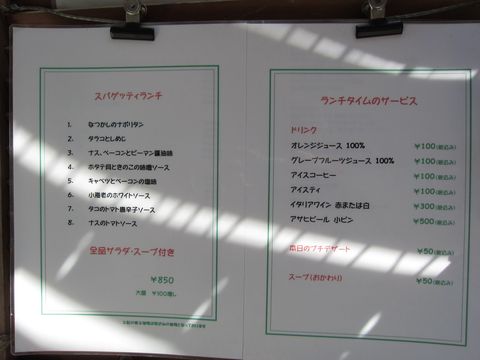 スパゲッティランチ
1. なつかしのナポリタン
2. タラコとしめじ
3. ナス、ベーコンとピーマン醤油味
4. ホタテ貝ときのこの味噌ソース
5. キャベツとベーコンの塩味
6. 小海老のホワイトソース
7. タコのトマト唐辛子ソース
8. ナスのトマトソース
全品サラダ・スープ付き
¥850
大盛 ¥100増し
ランチタイムのサービス
ドリンク
オレンジジュース 100% ¥100(税込み)
グレープフルーツジュース 100% ¥100(税込み)
アイスコーヒー ¥100(税込み)
アイスティ ¥100(税込み)
イタリアワイン 赤または白 ¥300(税込み)
アサヒビール 小ビン ¥500(税込み)
本日のプチデザート ¥50(税込み)
スープ(おかわり) ¥50(税込み)